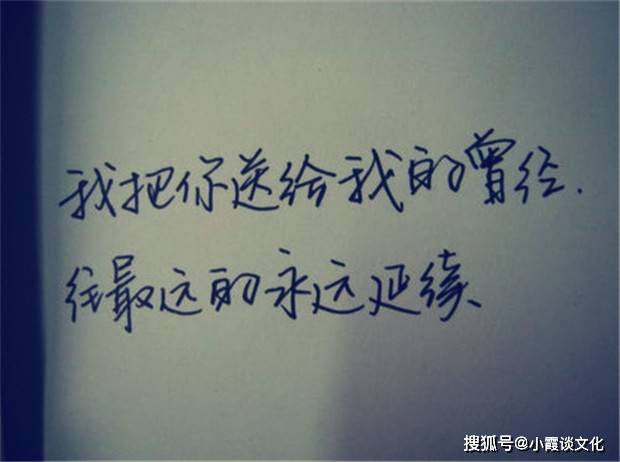 我把你送给我的曾经.
往最远的永远延续、
搜狐号@小霞谈文化